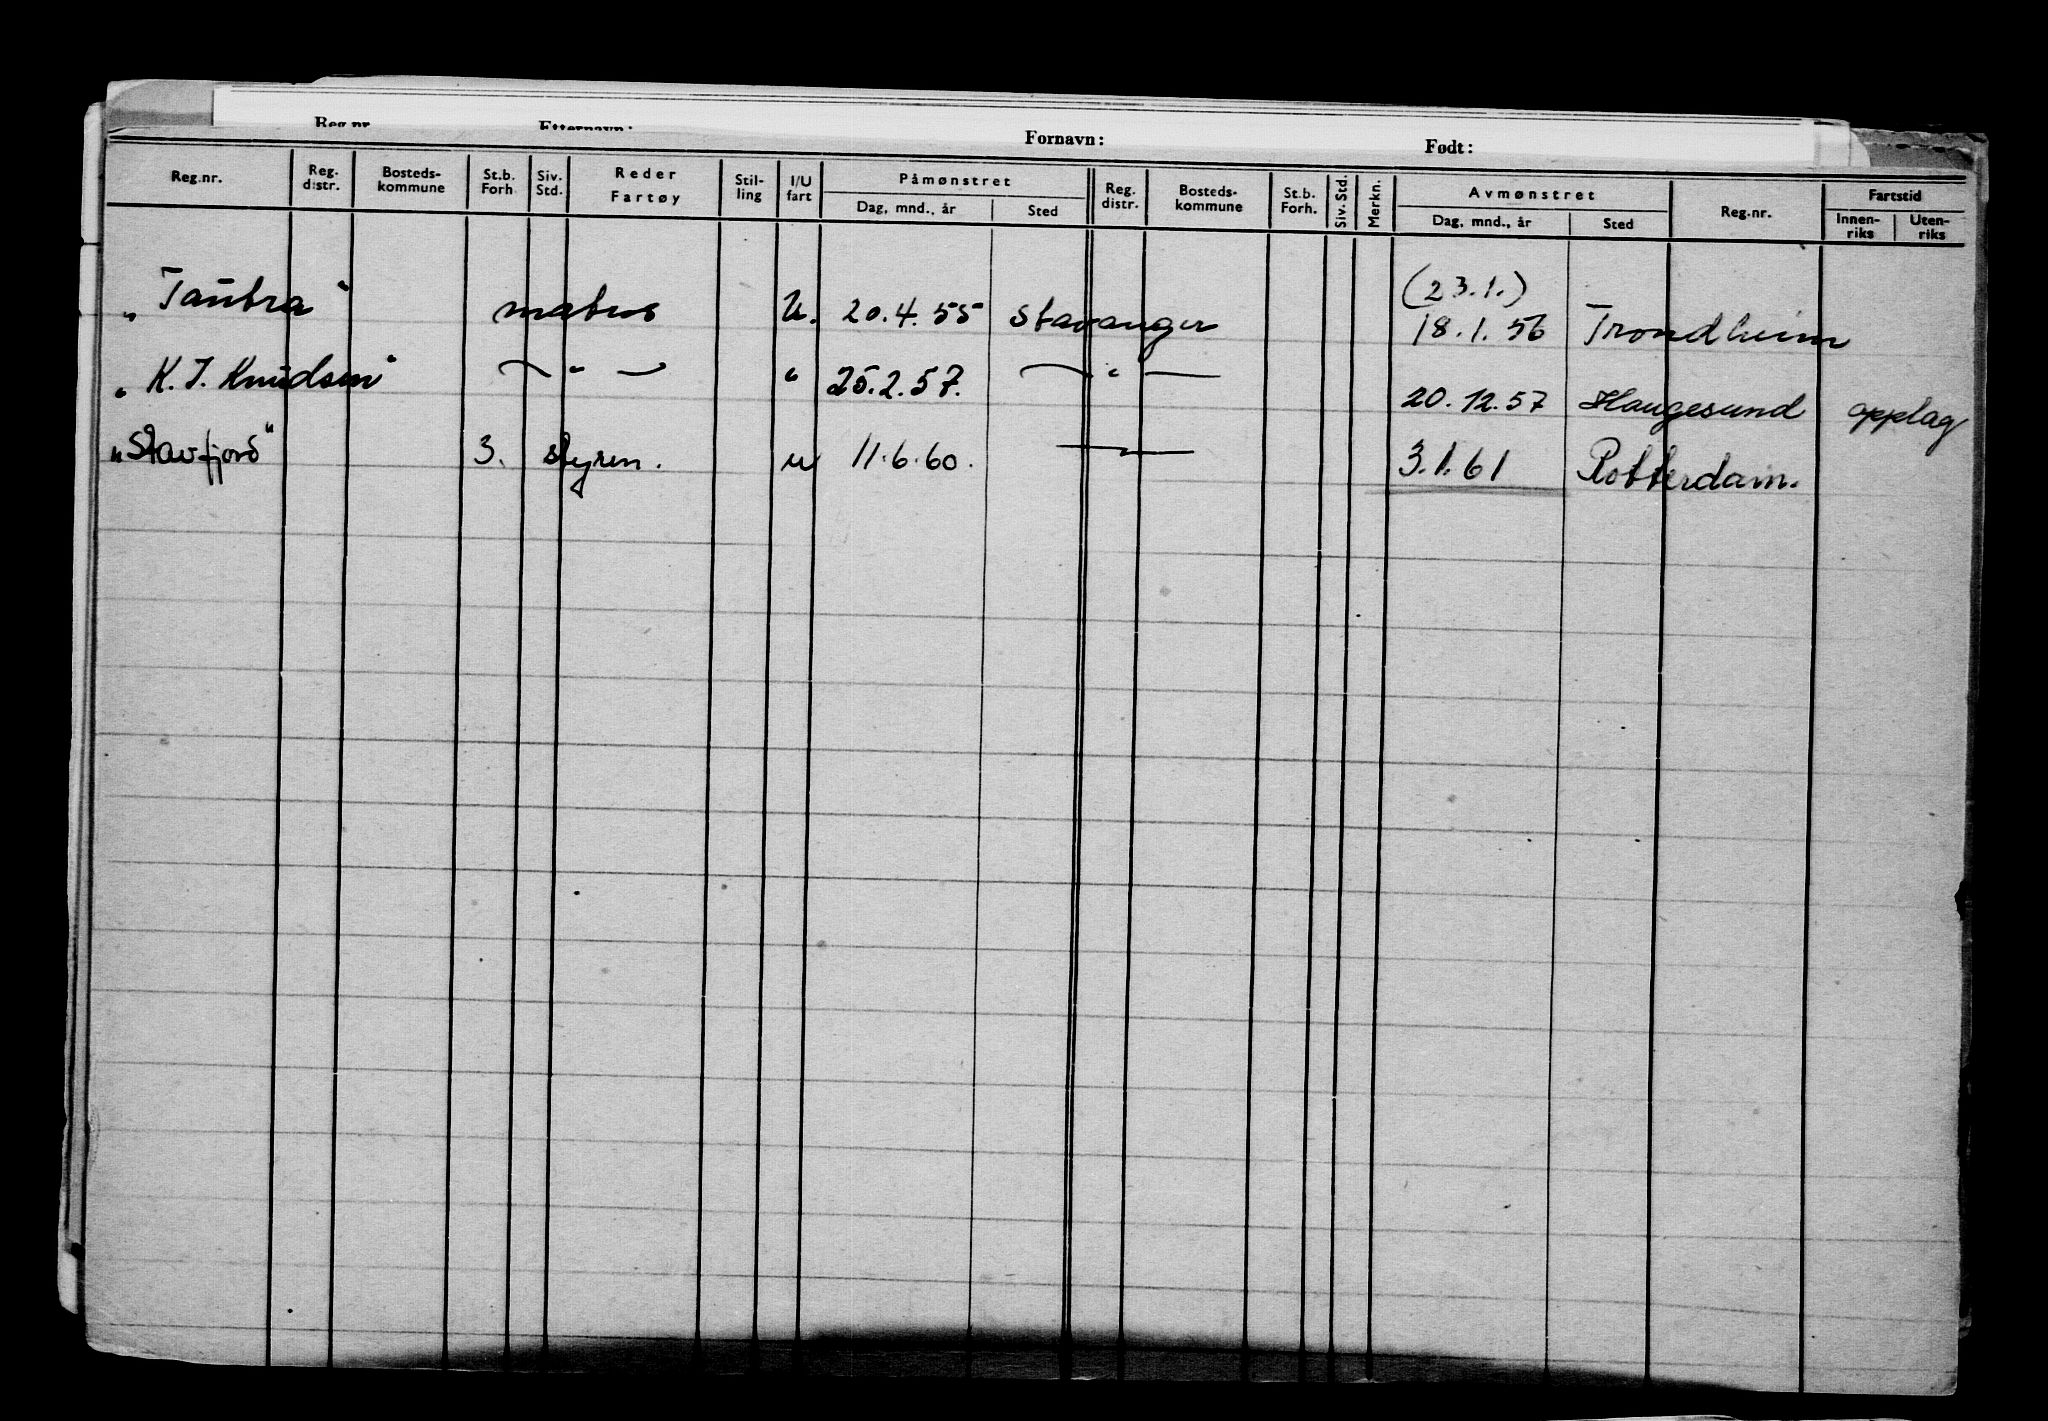 Reg.nr. Etternavn: Fornavn: Født:
Reg.nr. Reg. distr. Bosteds-kommune St.b. Forh. Siv. Std. Reder Fartøy Stil-ling I/U fart Påmønstret Dag, mnd., år Sted Reg. distr. Bosteds-kommune St.b. Forh. Siv. Std. Merkn. Avmønstret Dag, mnd., år Sted Reg.nr. Fartstid Innen-riks Uten-riks
(23.1.)
„Tautra" matros U. 20.4.55 Stavanger 18.1.56 Trondheim
„K. J. Knudsen" — " — " 25.2.57. — " — 20.12.57 Haugesund opplag
„Stavfjord" 3. styrm. u 11.6.60. — " — 3.1.61 Rotterdam.